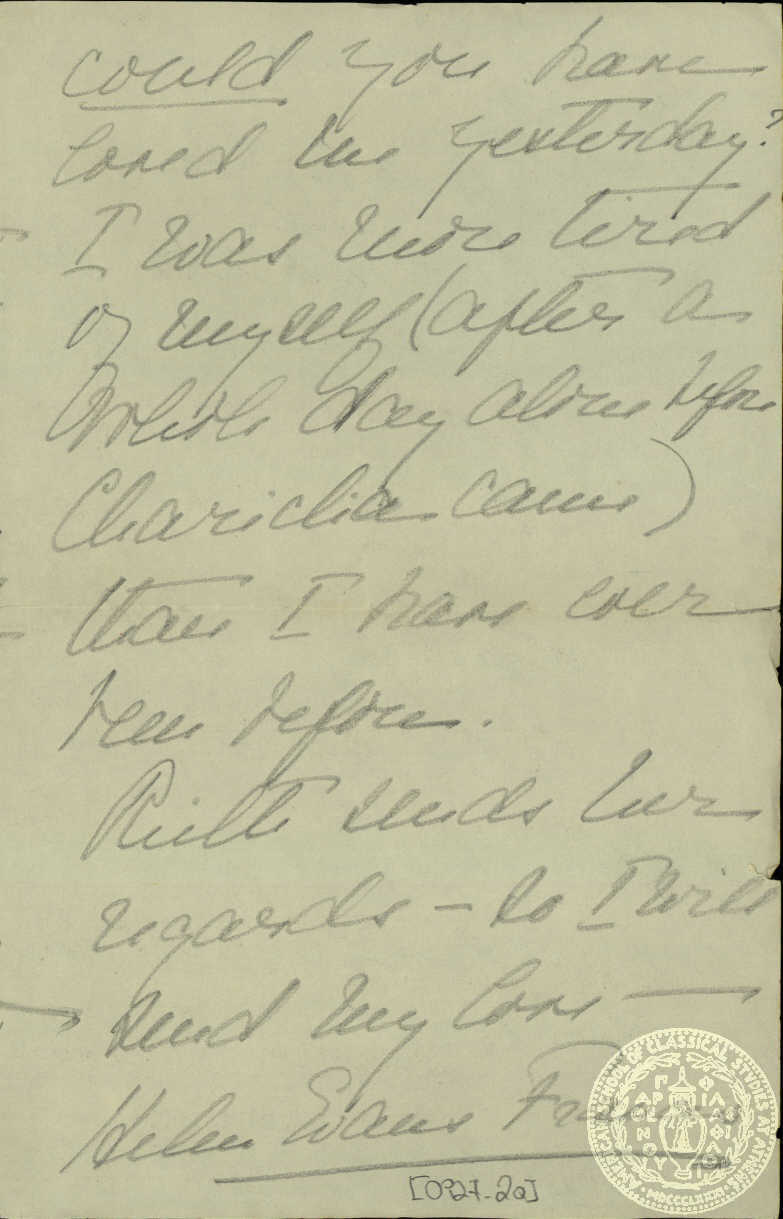 could you have
loved me yesterday?
I was more tired
of myself (after a
whole day alone before
Chariclia came)
than I have ever
been before.
Ruth sends her
regards – so I will
send my love —
Helen Evans
[0927-2a]
AMERICAN SCHOOL OF CLASSICAL STUDIES AT ATHENS
MDCCCLXXXI